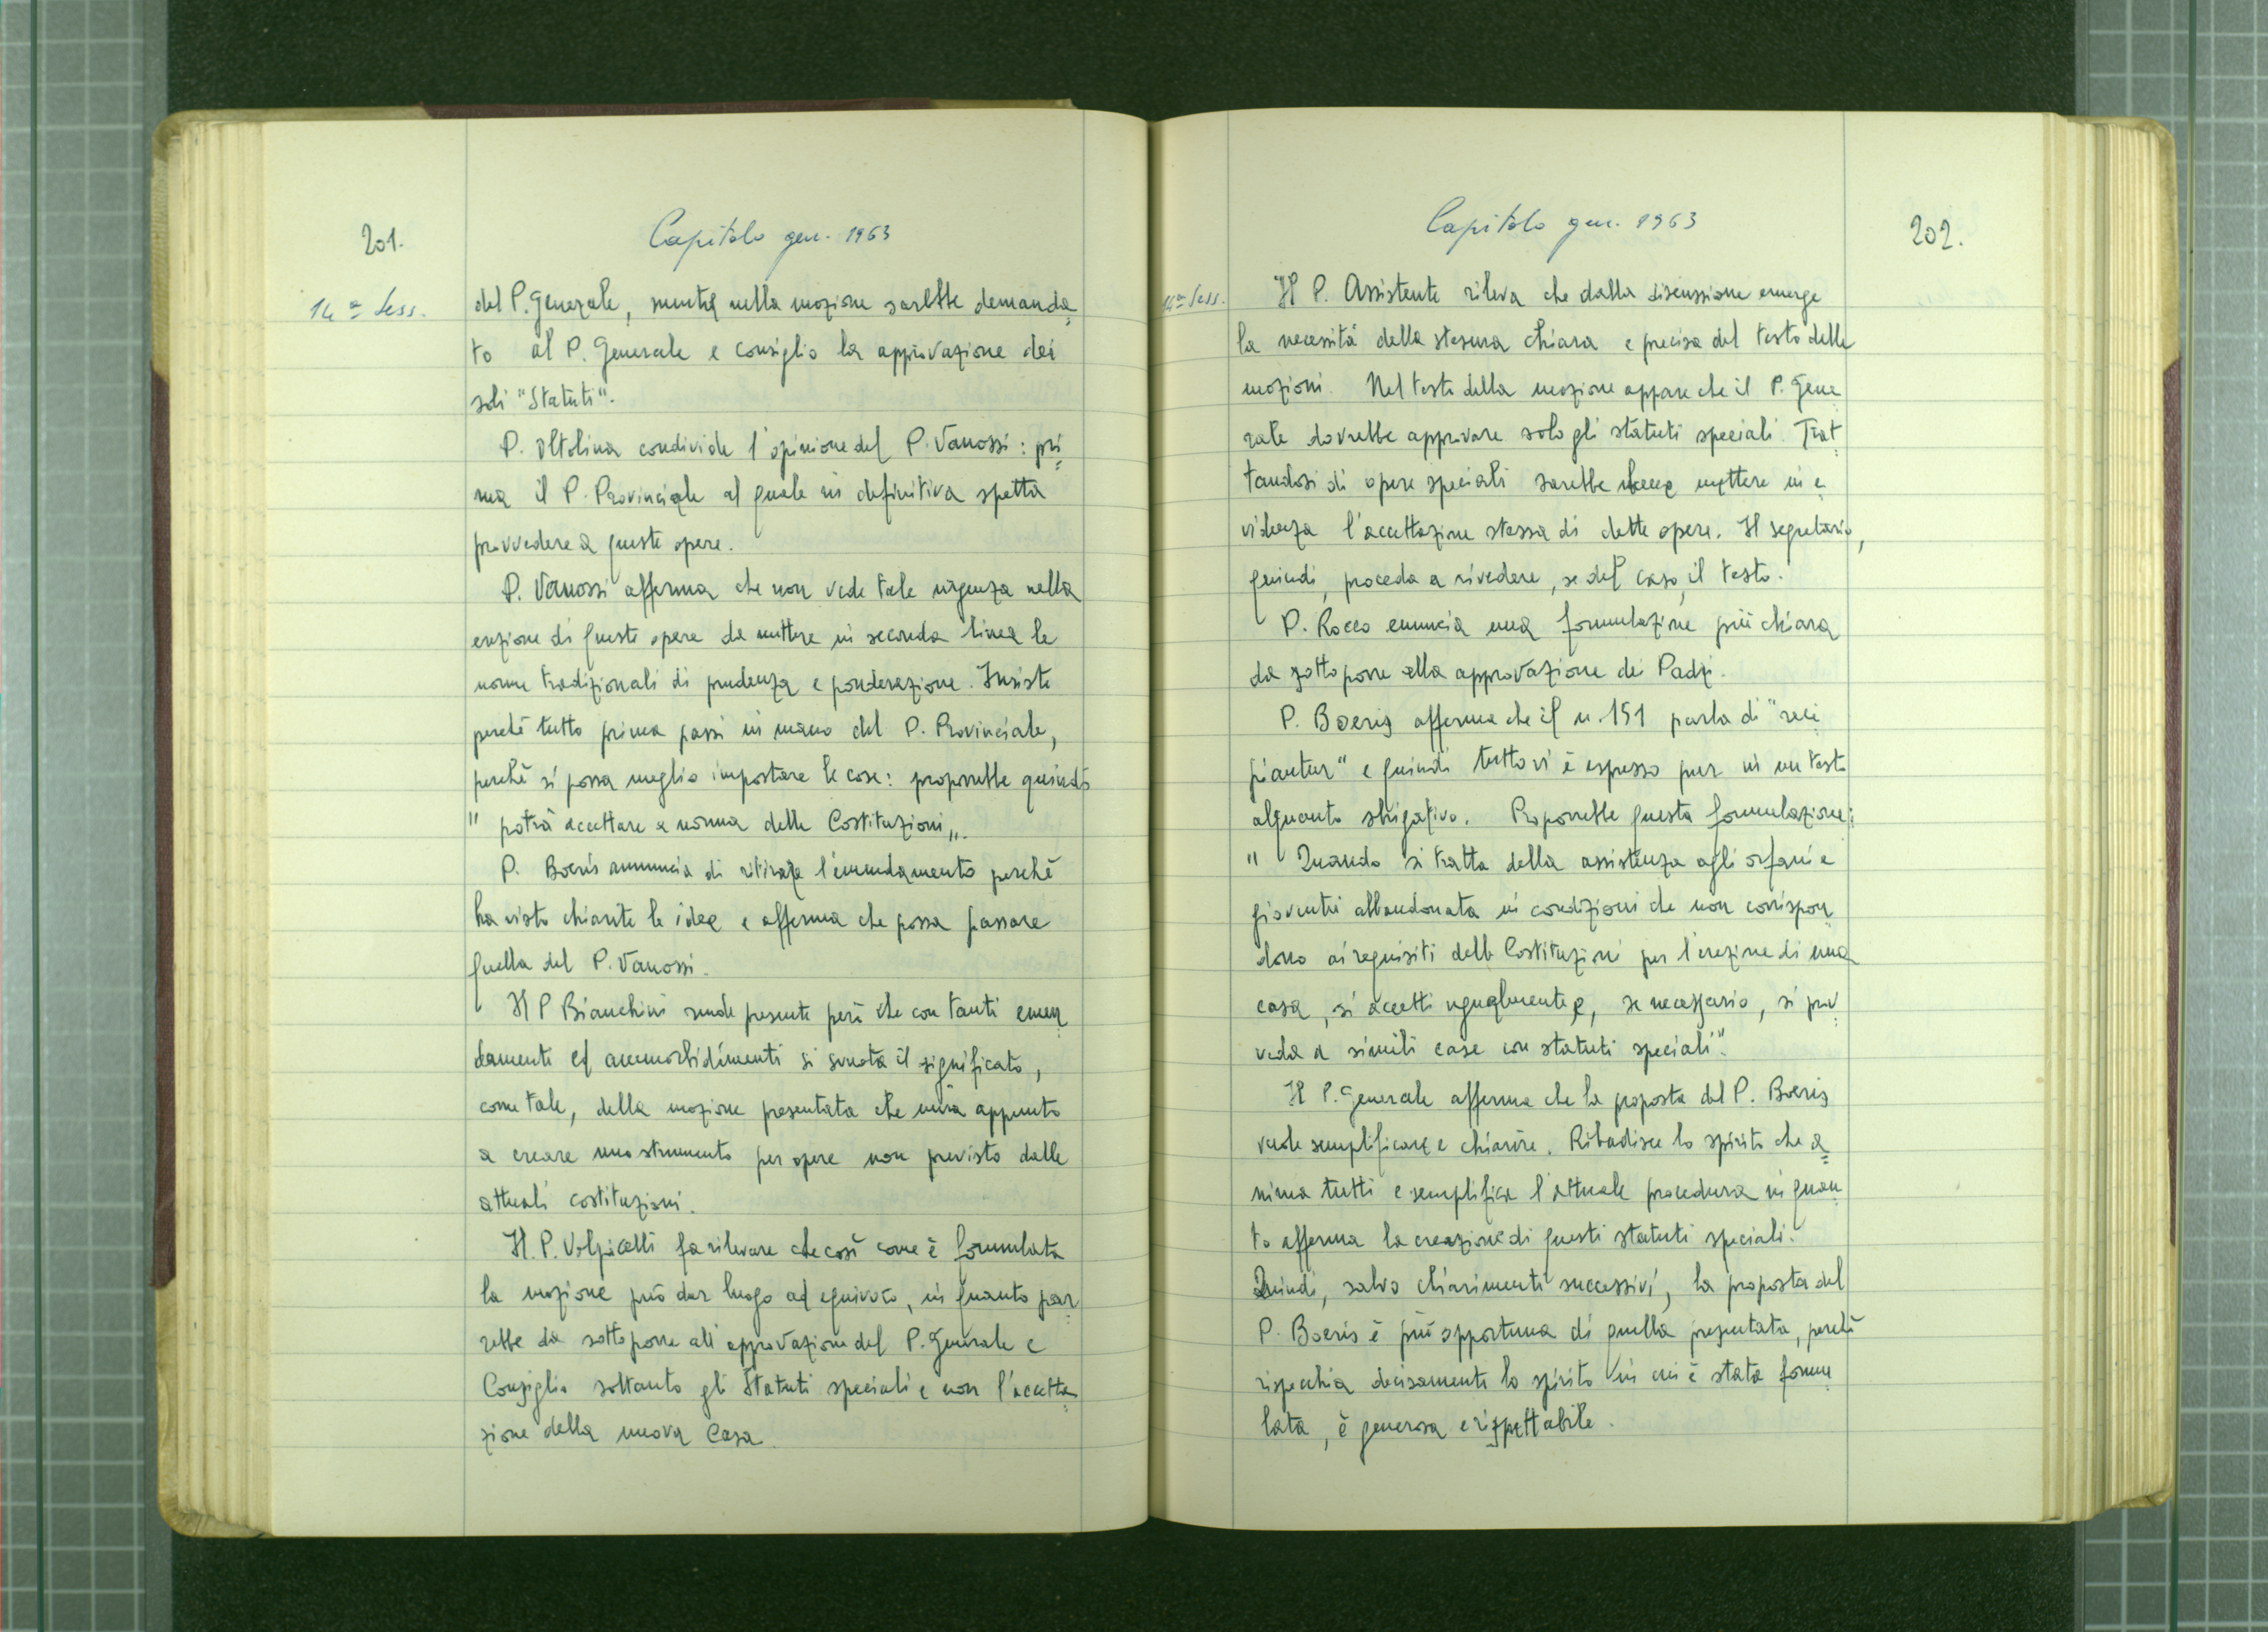 201.
Capitolo gen. 1963
14ª Sess.
del P. Generale, mentre nella mozione sarebbe demanda=
to al P. Generale e consiglio la approvazione dei
soli "Statuti".
P. Oltolina condivide l'opinione del P. Vanossi: pri=
ma il P. Provinciale al quale in definitiva spetta
provvedere a queste opere.
P. Vanossi afferma che non vede tale urgenza nella
erezione di queste opere da mettere in seconda linea le
norme tradizionali di prudenza e ponderazione. Insiste
perchè tutto prima passi in mano del P. Provinciale,
perchè si possa meglio impostare le cose: proporrebbe quindi
" potrà accettare a norma delle Costituzioni „.
P. Boeris annuncia di ritirare l'emendamento perchè
ha visto chiarite le idee e afferma che possa passare
quella del P. Vanossi.
Il P Bianchini rende presente però che con tanti emen=
damenti ed ammorbidimenti si svuota il significato,
come tale, della mozione presentata che mira appunto
a creare uno strumento per opere non previsto dalle
attuali costituzioni.
Il. P. Volpicelli fa rilevare che così come è formulata
la mozione può dar luogo ad equivoco, in quanto par=
rebbe da sottoporre all'approvazione del P. Generale e
Consiglio soltanto gli Statuti speciali e non l'accetta=
zione della nuova Casa.
Capitolo gen. 1963
202.
14ª Sess.
Il P. Assistente rileva che dalla discussione emerge
la necessità della stesura chiara e precisa del testo delle
mozioni. Nel testo della mozione appare che il P. Gene
rale dovrebbe approvare solo gli statuti speciali. Trat=
tandosi di opere speciali sarebbe bene mettere in e=
videnza l'accettazione stessa di dette opere. Il segretario,
quindi, proceda a rivedere, se del caso, il testo.
P. Rocco enuncia una formulazione più chiara
da sottoporre alla approvazione dei Padri.
P. Boeris afferma che il n. 151 parla di "reci
piantur" e quindi tutto vi è espresso pur in un testo
alquanto sbrigativo. Proporrebbe questa formulazione:
" Quando si tratta della assistenza agli orfani e
gioventù abbandonata in condizioni che non corrispon
dono ai requisiti delle Costituzioni per l'erezione di una
casa, si accetti ugualmente e, se necessario, si prov=
veda a simili case con statuti speciali".
Il P. Generale afferma che la proposta del P. Boeris
vuole semplificare e chiarire. Ribadisce lo spirito che a=
nima tutti e semplifica l'attuale procedura in quan=
to afferma la creazione di questi statuti speciali.
Quindi, salvo chiarimenti successivi, la proposta del
P. Boeris è più opportuna di quella presentata, perchè
rispecchia decisamente lo spirito in cui è stata formu=
lata, è generosa e rispettabile.